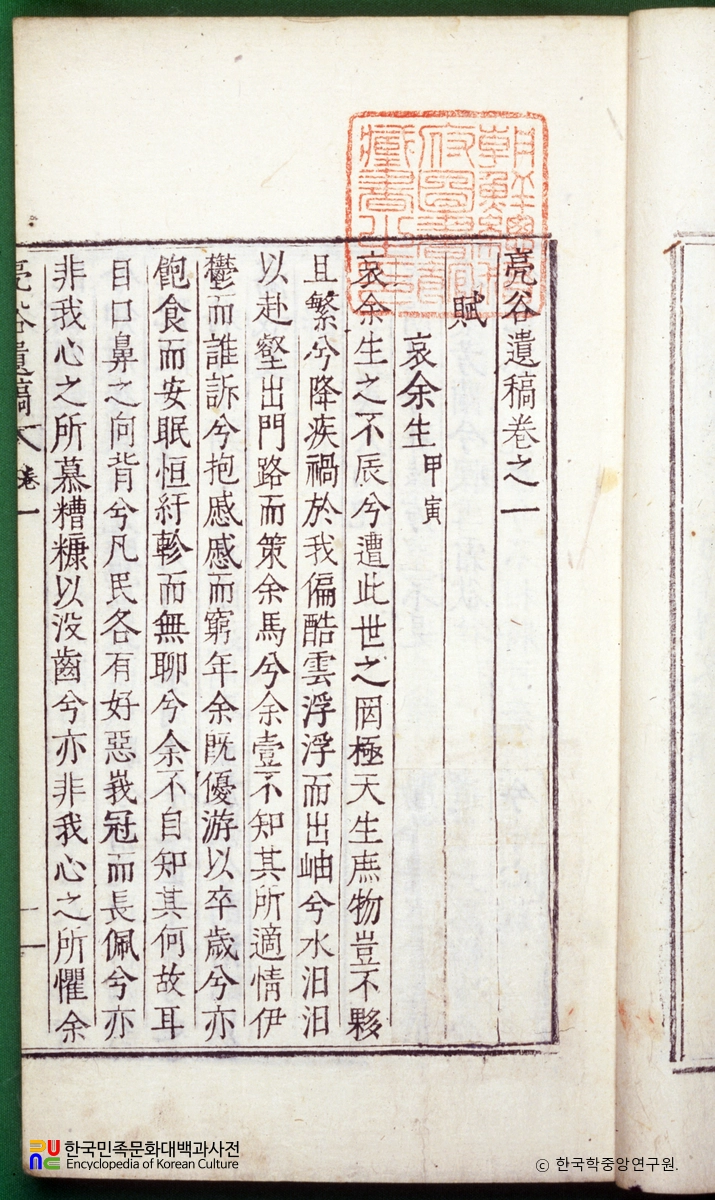 亮谷遺稿卷之一
賦
哀余生 甲寅
哀余生之不辰兮遭此世之罔極天生庶物豈不夥
且繁兮降疾禍於我偏酷雲浮浮而出岫兮水汨汨
以赴壑出門路而策余馬兮余壹不知其所適情伊
鬱而誰訴兮抱慼慼而窮年余旣優游以卒歲兮亦
飽食而安眠恒紆軫而無聊兮余不自知其何故耳
目口鼻之向背兮凡民各有好惡峩冠而長佩兮亦
非我心之所慕糟糠以没齒兮亦非我心之所懼余
亮谷遺稿 卷一 一
朝鮮總督府圖書館藏書之印
한국민족문화대백과사전
Encyclopedia of Korean Culture
© 한국학중앙연구원.